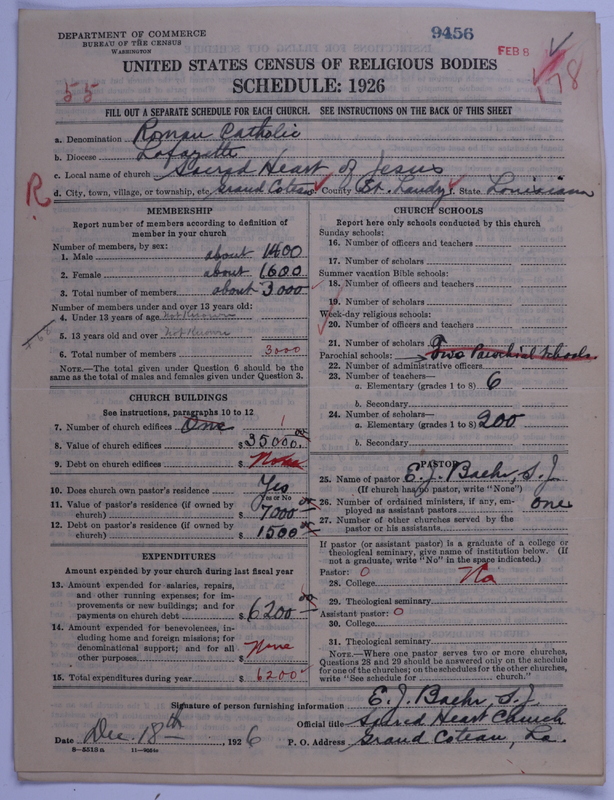 DEPARTMENT OF COMMERCE
BUREAU OF THE CENSUS
WASHINGTON
9456
FEB 8
178
55
UNITED STATES CENSUS OF RELIGIOUS BODIES
SCHEDULE: 1926
FILL OUT A SEPARATE SCHEDULE FOR EACH CHURCH. SEE INSTRUCTIONS ON THE BACK OF THIS SHEET
a. Denomination Roman Catholic
b. Diocese Lafayette
c. Local name of church Sacred Heart of Jesus
R
d. City, town, village, or township, etc. Grand Coteau e. County St. Landry f. State Louisiana
MEMBERSHIP
Report number of members according to definition of
member in your church
Number of members, by sex:
1. Male about 1400
2. Female about 1600
3. Total number of members about 3000
Number of members under and over 13 years old:
4. Under 13 years of age Not Known
5. 13 years old and over Not Known
6. Total number of members 3000
NOTE.—The total given under Question 6 should be
the same as the total of males and females given under Question 3.
CHURCH BUILDINGS
See instructions, paragraphs 10 to 12
7. Number of church edifices One 1
8. Value of church edifices $35000.00
9. Debt on church edifices $ None
10. Does church own pastor's residence Yes
Yes or No
11. Value of pastor's residence (if owned by
church) $7000 00
12. Debt on pastor's residence (if owned by
church) $1500 00
EXPENDITURES
Amount expended by your church during last fiscal year
13. Amount expended for salaries, repairs,
and other running expenses; for im-
provements or new buildings; and for
payments on church debt $6200 00
14. Amount expended for benevolences, in-
cluding home and foreign missions; for
denominational support; and for all
other purposes $ None
15. Total expenditures during year $ 6200
CHURCH SCHOOLS
Report here only schools conducted by this church
Sunday schools:
16. Number of officers and teachers
17. Number of scholars
Summer vacation Bible schools:
18. Number of officers and teachers
19. Number of scholars
Week-day religious schools:
20. Number of officers and teachers
21. Number of scholars
Parochial schools: Two Parochial Schools.
22. Number of administrative officers
23. Number of teachers—
a. Elementary (grades 1 to 8) 6
b. Secondary
24. Number of scholars—
a. Elementary (grades 1 to 8) 200
b. Secondary
PASTOR
25. Name of pastor E. J. Baehr, S. J.
(If church has no pastor, write "None")
26. Number of ordained ministers, if any, em-
ployed as assistant pastors one
27. Number of other churches served by the
pastor or his assistants
If pastor (or assistant pastor) is a graduate of a college or
theological seminary, give name of institution below. (If
not a graduate, write "No" in the space indicated.)
Pastor: 0
28. College No
29. Theological seminary
Assistant pastor: 0
30. College
31. Theological seminary
NOTE.—Where one pastor serves two or more churches,
Questions 28 and 29 should be answered only on the schedule
for one of the churches; on the schedules for the other churches,
write "See schedule for church."
Signature of person furnishing information E. J. Baehr, S. J.
Official title Sacred Heart Church
Date Dec. 18th, 1926 P. O. Address Grand Coteau, La.
8—5513 a